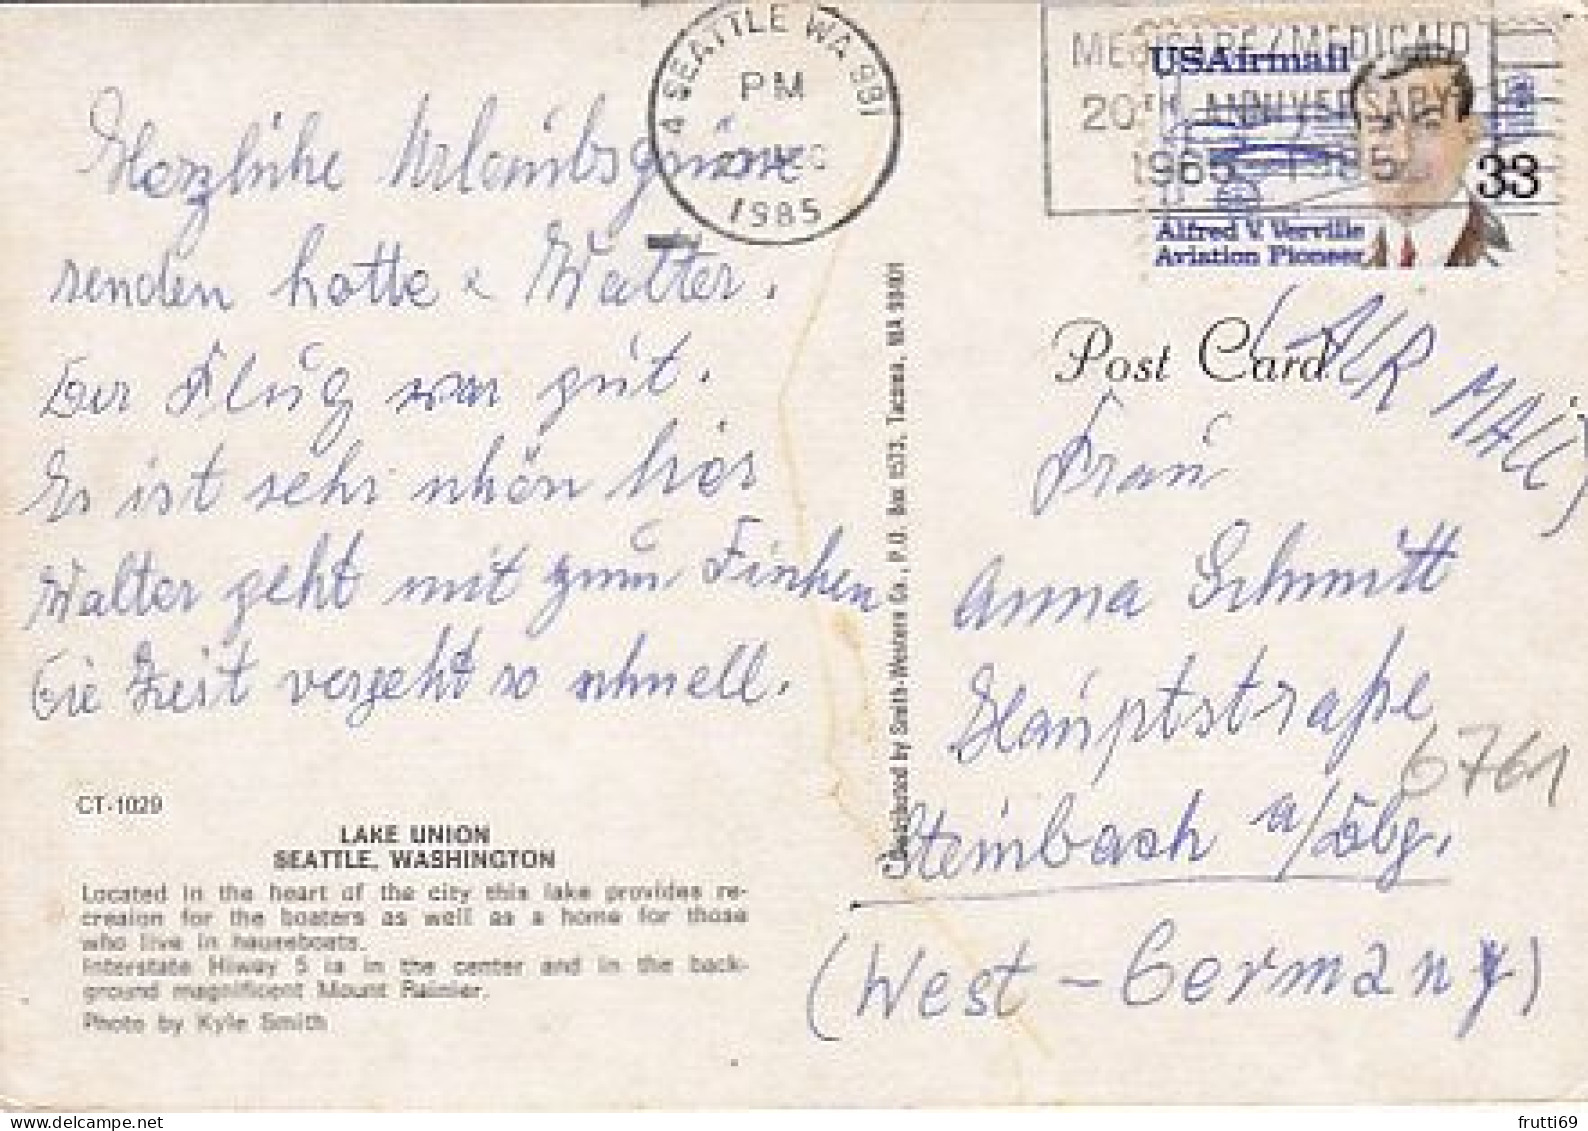 SEATTLE WA 981
PM
1985
MEDICARE/MEDICAID
20TH ANNIVERSARY
1965 1985
USAirmail
33
Alfred V. Verville
Aviation Pioneer
Herzliche Urlaubsgrüsse
senden Lotte & Walter.
Der Flug war gut.
Es ist sehr schön hier
Walter geht mit zum Fischen
Die Zeit vergeht so schnell.
CT-1029
LAKE UNION
SEATTLE, WASHINGTON
Located in the heart of the city this lake provides re-
creaion for the boaters as well as a home for those
who live in houseboats.
Interstate Hiway 5 is in the center and in the back-
ground magnificent Mount Rainier.
Photo by Kyle Smith
Distributed by Smith-Western Co., P.O. Box 1573, Tacoma, WA 98401
Post Card
(AIR MAIL)
Frau
Anna Schmitt
Hauptstraße
6761
Steinbach a/Dbg.
(West-Germany)
frutti69